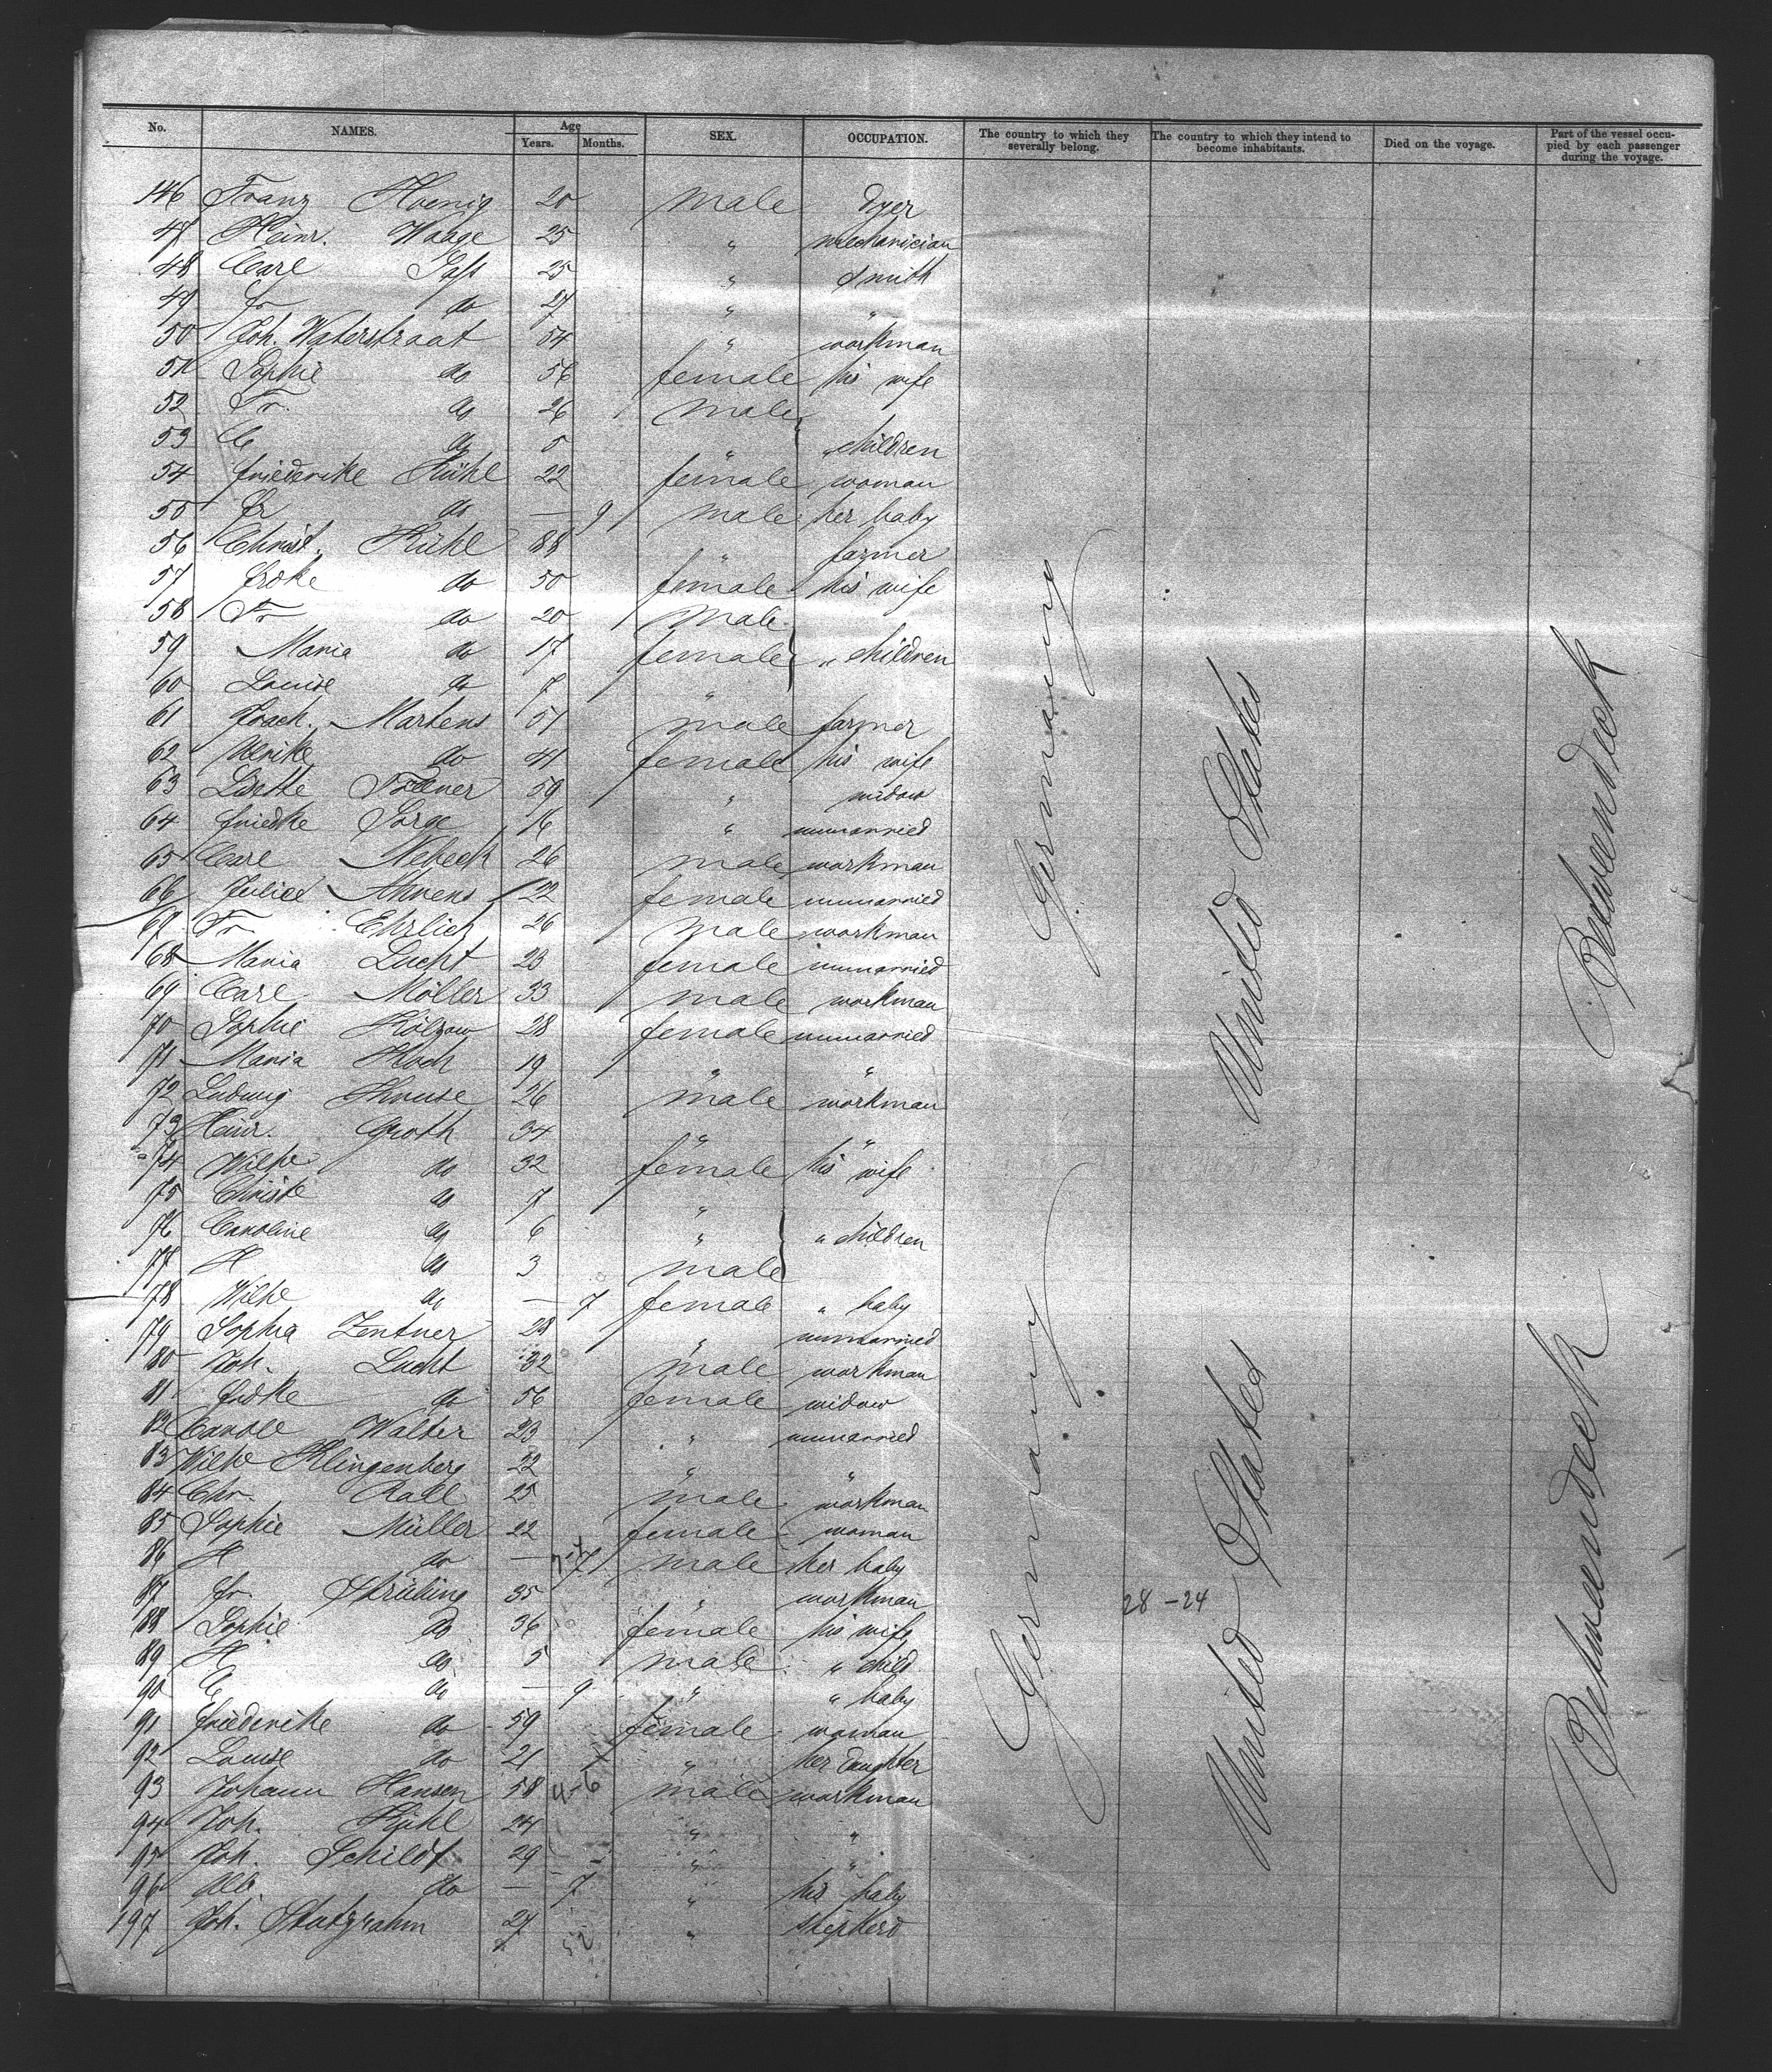 No. NAMES. Age Years. Months. SEX. OCCUPATION. The country to which they severally belong. The country to which they intend to become inhabitants. Died on the voyage. Part of the vessel occupied by each passenger during the voyage.
146 Franz Hoenig 20 male dyer
47 Heinr. Waage 25 " mechanician
48 Carl 25 " smith
49 Fr do 27 " "
50 Joh. Waterstraat 54 " workman
51 Sophie do 56 female his wife
52 Fr. do 26 male
53 C do 5 " " children
54 Friederike Kühl 22 female woman
55 Fr do — 9 male her baby
56 Christ. Kühl 88 " farmer
57 Frdke do 50 female his wife
58 Fr do 20 male
59 Maria do 17 female " children
60 Louise do 7 "
61 Joach. Martens 51 male farmer
62 Ulrike do 41 female his wife
63 Lisette 59 " widow
64 Friedke Sorge 16 " unmarried
65 Carl Nebeck 26 male workman
66 Julie Ahrens 22 female unmarried
67 Fr Ehrlich 26 male workman
68 Maria Lucht 23 female unmarried
69 Carl Möller 33 male workman
70 Sophie Kölzow 28 female unmarried
71 Maria Koch 19 " "
72 Ludwig Kruse 26 male workman
73 Heinr. Groth 34 " "
74 Wilhe do 32 female his wife
75 Christe do 7 "
76 Caroline do 6 " " children
77 H do 3 male
78 Wilhe do — 7 female " baby
79 Sophia Zentner 28 " unmarried
80 Joh. Lucht 32 male workman
81 Frdke do 56 female widow
82 Walter 23 " unmarried
83 Wilhe Klingenberg 22 " "
84 Chr. Rall 25 male workman
85 Sophie Müller 22 female woman
86 H do — 7 male her baby
87 Fr. Strübing 35 " workman
88 Sophie do 36 female his wife
89 H do 5 male " child
90 C do — 9 " " baby
91 Friederike do 59 female woman
92 Louise do 21 " her daughter
93 Johann Hansen 58 male workman
94 Joh. Kühl 24 " "
95 Joh. Schildt 29 " "
96 Alb. do — 7 " his baby
197 Joh. 27 " shepherd
Germany United States Betweendeck
28 - 24
Germany United States Betweendeck